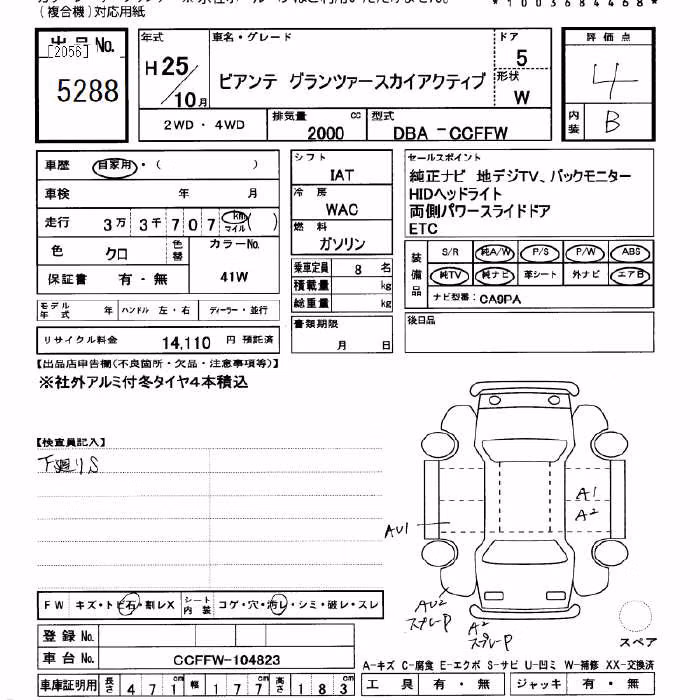 (複合機)対応用紙
*1003684468*
出品No.
[2056]
5288
年式 車名・グレード ドア
H25/10月 ビアンテ グランツァースカイアクティブ 5
形状 W
評価点 4
内装 B
2WD・4WD 排気量 2000 cc 型式 DBA-CCFFW
車歴 自家用・( )
車検 年 月
走行 3万 3千 7 0 7 km マイル ( )
色 クロ 色替 カラーNo. 41W
保証書 有・無
モデル年式 年 ハンドル 左・右 ディーラー・並行
リサイクル料金 14,110 円 預託済
シフト IAT
冷房 WAC
燃料 ガソリン
乗車定員 8 名
積載量 kg
総重量 kg
書類期限
月 日
セールスポイント
純正ナビ 地デジTV、バックモニター
HIDヘッドライト
両側パワースライドドア
ETC
装備品 S/R 純A/W P/S P/W ABS
純TV 純ナビ 革シート 外ナビ エアB
ナビ型番: CA9PA
後日品
【出品店申告欄(不良箇所・欠品・注意事項等)】
※社外アルミ付冬タイヤ4本積込
【検査員記入】
下廻りS
A1
A2
AU1
AU2
スプレーP
A2
スプレーP
スペア
FW キズ・トビ石・割レX シート内装 コゲ・穴・汚レ・シミ・破レ・スレ
登録No.
車台No. CCFFW-104823
車庫証明用 長さ 471cm 幅 177cm 高さ 183cm
A-キズ C-腐食 E-エクボ S-サビ U-凹ミ W-補修 XX-交換済
工具 有・無 ジャッキ 有・無